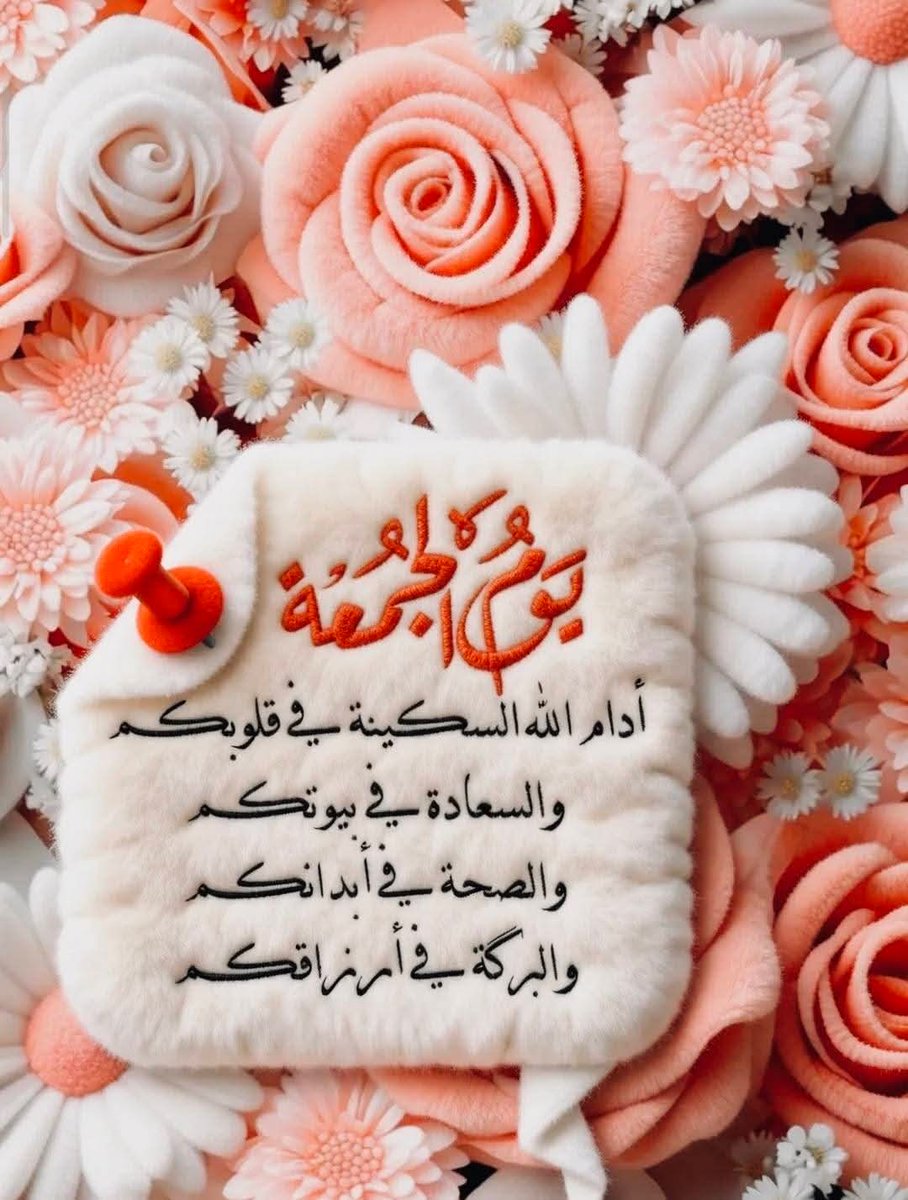 يَومُ الجُمُعة
أدام الله السكينة في قلوبكم
والسعادة في بيوتكم
والصحة في أبدانكم
والبركة في أرزاقكم